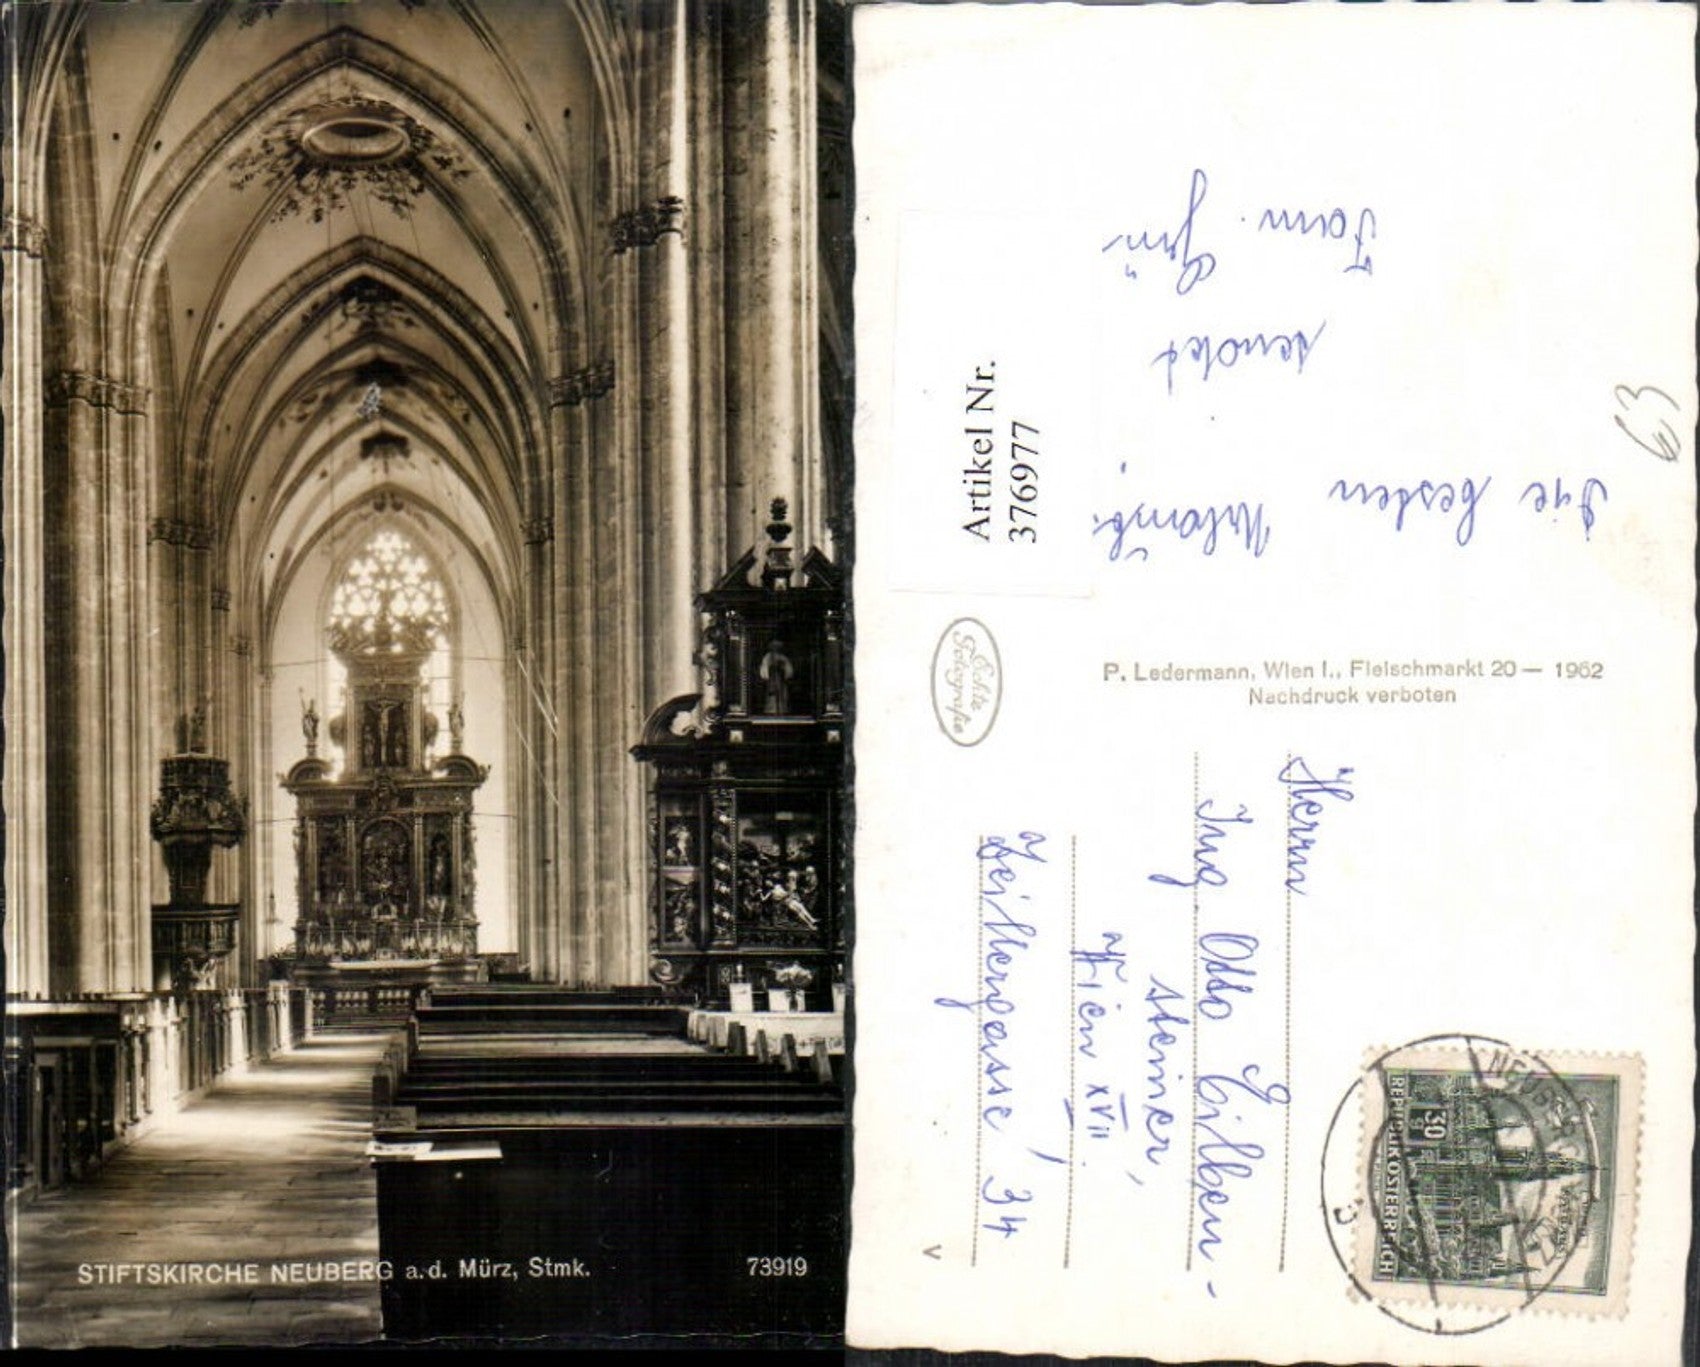 STIFTSKIRCHE NEUBERG a.d. Mürz, Stmk.
73919
Die besten
Urlaubs.
sendet
Fam. Grü
Artikel Nr.
376977
63
Echte
Fotografie
P. Ledermann, Wien I., Fleischmarkt 20 — 1962
Nachdruck verboten
Herrn
Ing. Otto Eilben-
steiner,
Wien XVII.
Zeillergasse, 34
V
REPUBLIK ÖSTERREICH
30 g
NEUB